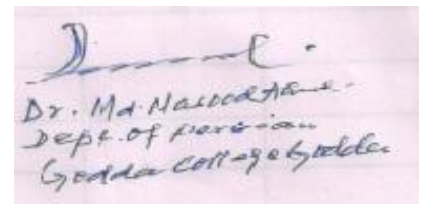 Dr. Md. Masood Ahmad
Dept. of Persian
Godda College Godda